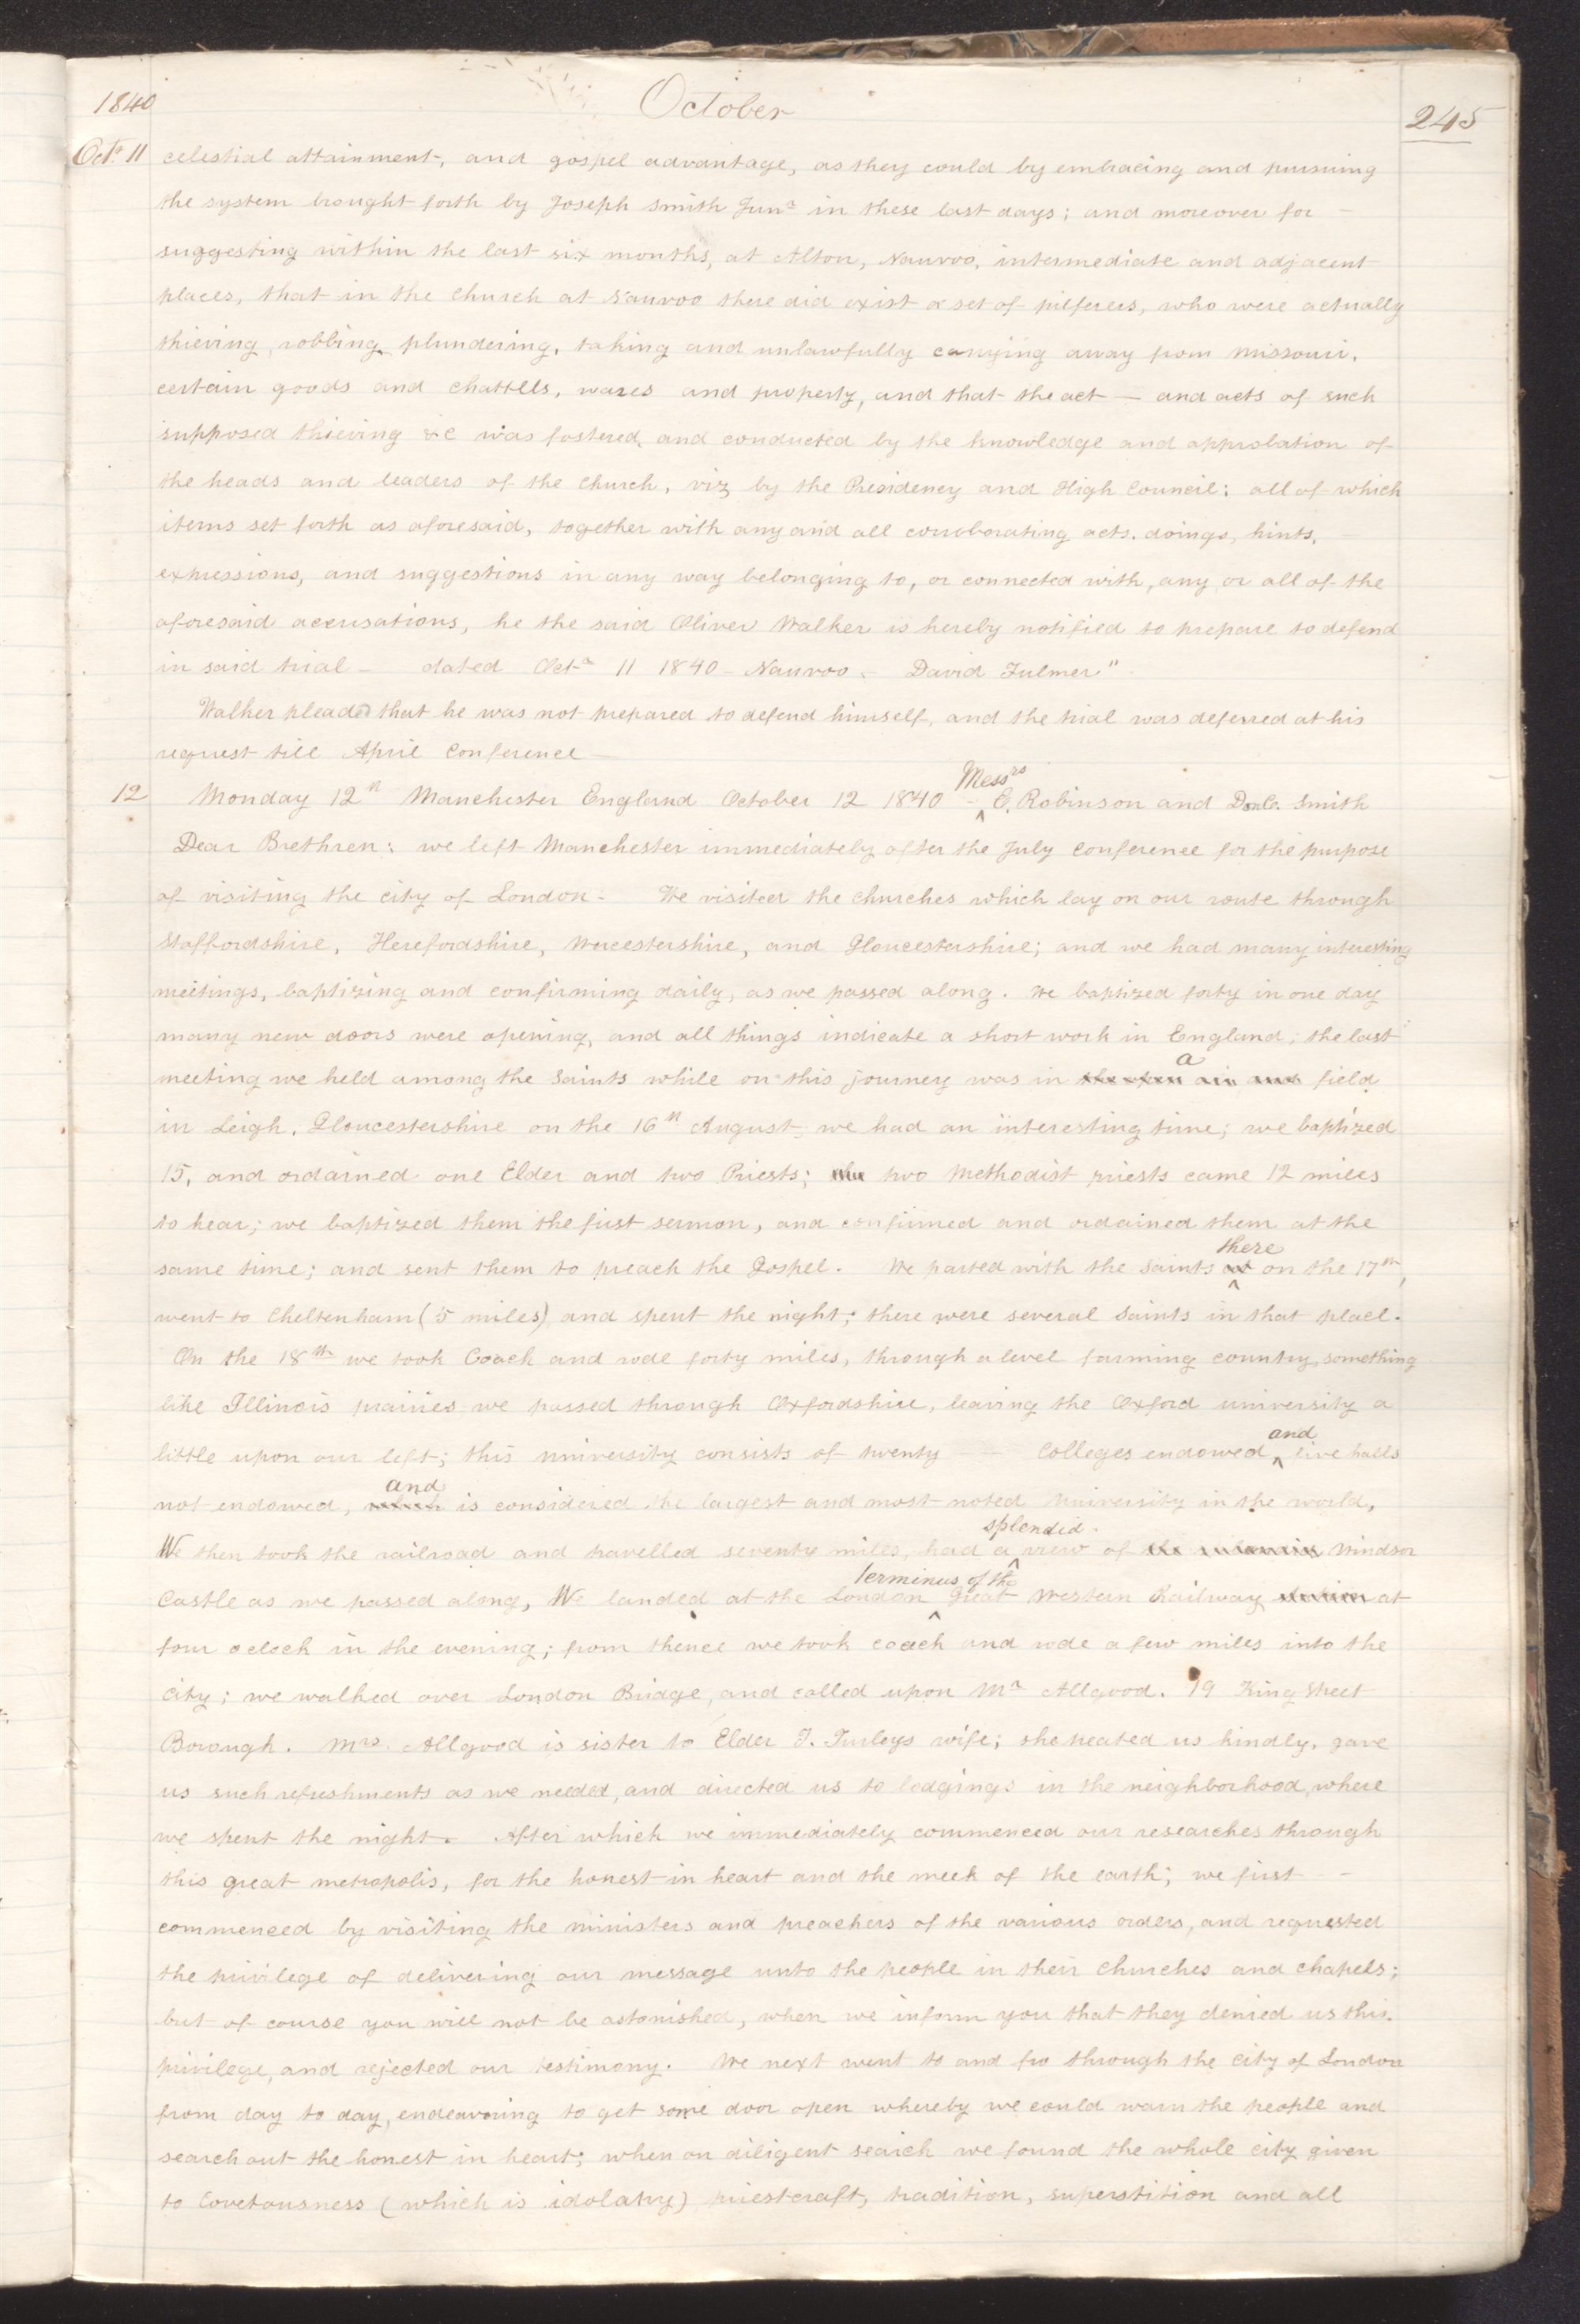 1840 October 245
Oct.r 11 celestial attainment, and gospel advantage, as they could by embracing and pursuing
the system brought forth by Joseph Smith Junr in these last days; and moreover for —
suggesting within the last six months, at Alton, Nauvoo, intermediate and adjacent
places, that in the Church at Nauvoo there did exist a set of pilferers, who were actually
thieving, robbing, plundering, taking and unlawfully carrying away from Missouri,
certain goods and chattells, wares and property, and that the act — and acts of such
supposed thieving &c was fostered and conducted by the knowledge and approbation of
the heads and leaders of the Church, viz by the Presidency and High Council; all of which
items set forth as aforesaid, together with any and all corroborating acts, doings, hints, —
expressions, and suggestions in any way belonging to, or connected with, any or all of the
aforesaid accusations, he the said Oliver Walker is hereby notified to prepare to defend
in said trial — dated Octr 11 1840 — Nauvoo. — David Fulmer"
Walker pleaded that he was not prepared to defend himself, and the trial was deferred at his
request till April Conference —
Messrs
12 Monday 12th Manchester England October 12 1840 — E. Robinson and D. C. Smith
Dear Brethren: we left Manchester immediately after the July conference for the purpose
of visiting the city of London. We visited the churches which lay on our route through
Staffordshire, Herefordshire, Worcestershire, and Gloucestershire; and we had many interesting
meetings, baptizing and confirming daily, as we passed along. We baptized forty in one day
many new doors were opening, and all things indicate a short work in England; the last
a
meeting we held among the Saints while on this journey was in the open air and field
in Leigh, Gloucestershire on the 16th August, we had an interesting time; we baptized
15, and ordained one Elder and two Priests; the two Methodist priests came 12 miles
to hear; we baptized them the first sermon, and confirmed and ordained them at the
there
same time; and sent them to preach the Gospel. We parted with the Saints at on the 17th,
went to Cheltenham (5 miles) and spent the night; there were several Saints in that place.
On the 18th we took Coach and rode forty miles, through a level farming country, something
like Illinois prairies we passed through Oxfordshire, leaving the Oxford university a
and
little upon our left; this university consists of twenty — Colleges endowed, five halls
and
not endowed, which is considered the largest and most noted University in the world,
splendid
We then took the railroad and travelled seventy miles, had a view of the Windsor
terminus of the
Castle as we passed along, We landed at the London Great Western Railway station at
four oclock in the evening; from thence we took coach and rode a few miles into the
city; we walked over London Bridge, and called upon Mr Allgood. 19 King Street
Borough. Mrs. Allgood is sister to Elder T. Turleys wife; she treated us kindly, gave
us such refreshments as we needed, and directed us to lodgings in the neighborhood, where
we spent the night. After which we immediately commenced our researches through
this great metropolis, for the honest in heart and the meek of the earth; we first —
commenced by visiting the ministers and preachers of the various orders, and requested
the privilege of delivering our message unto the people in their churches and chapels;
but of course you will not be astonished, when we inform you that they denied us this
privilege, and rejected our testimony. We next went to and fro through the city of London
from day to day, endeavoring to get some door open whereby we could warn the people and
search out the honest in heart; when on diligent search we found the whole city given
to Covetousness (which is idolatry) priestcraft, tradition, superstition and all